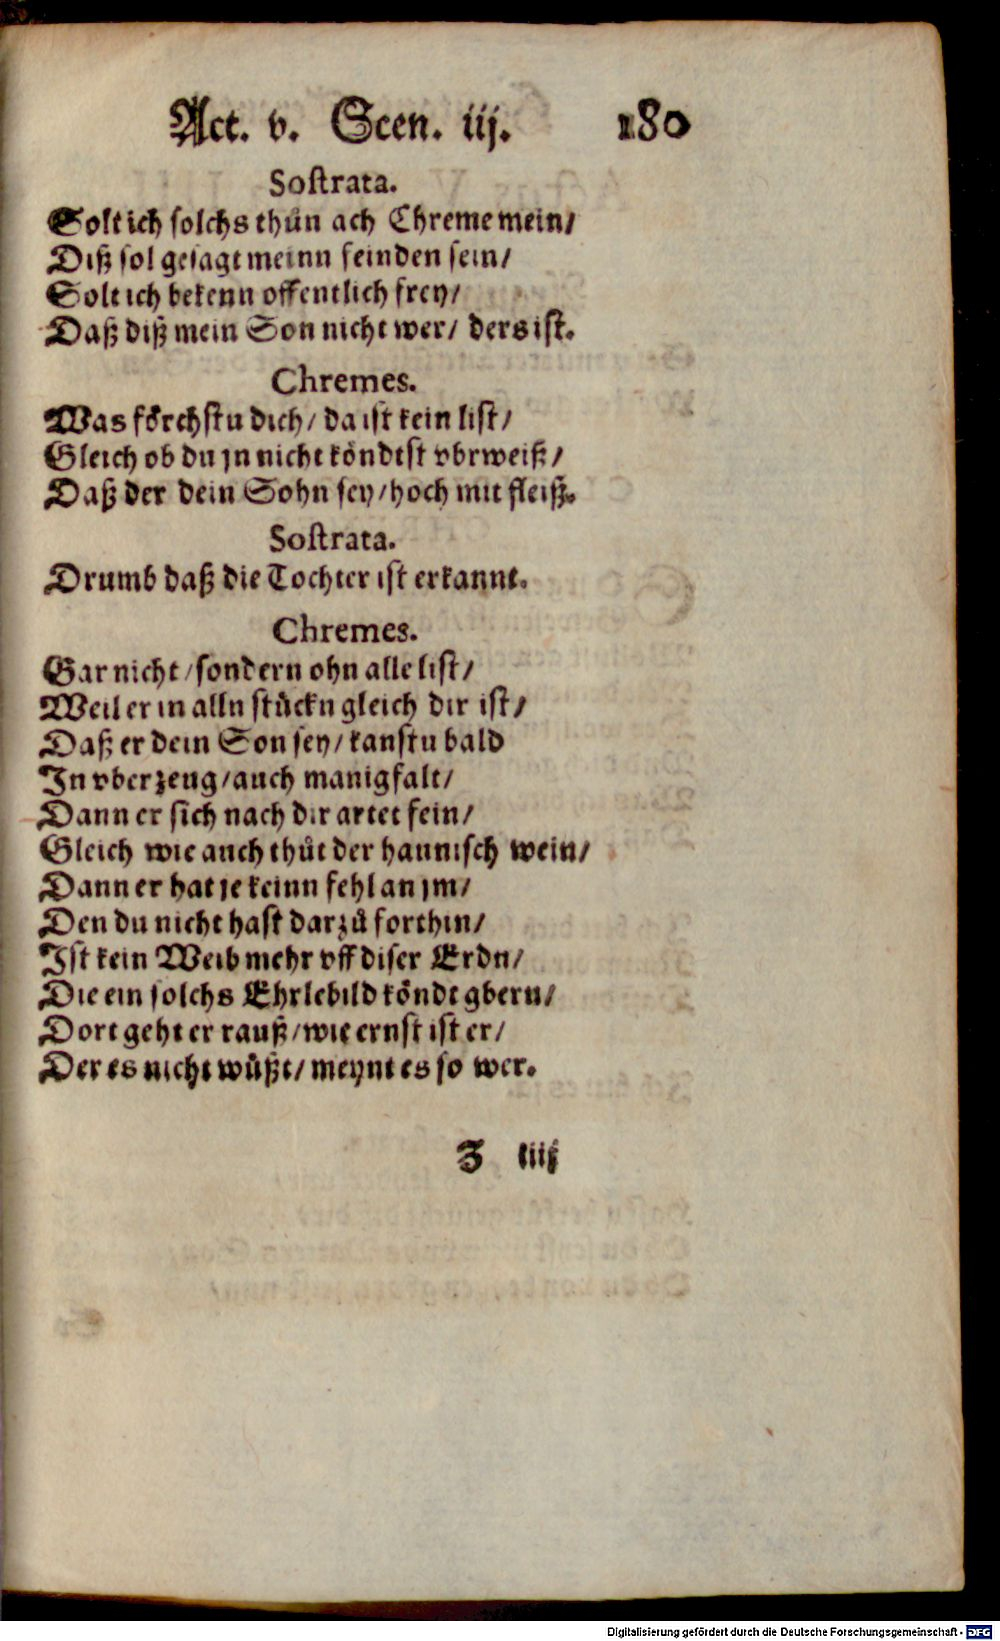 Act. v. Scen. iij. 180
Sostrata.
Solt ich solchs thůn ach Chreme mein/
Diß sol gesagt meinn feinden sein/
Solt ich bekenn offentlich frey/
Daß diß mein Son nicht wer/ ders ist.
Chremes.
Was förchstu dich/ da ist kein list/
Gleich ob du jn nicht köndtst vbrweiß/
Daß der dein Sohn sey/ hoch mit fleiß.
Sostrata.
Drumb daß die Tochter ist erkannt.
Chremes.
Gar nicht/ sondern ohn alle list/
Weil er in alln stückn gleich dir ist/
Daß er dein Son sey/ kanstu bald
In vberzeug/ auch manigfalt/
Dann er sich nach dir artet fein/
Gleich wie auch thůt der haunisch wein/
Dann er hat je keinn fehl an jm/
Den du nicht hast darzů forthin/
Ist kein Weib mehr vff diser Erdn/
Die ein solchs Ehrlebild köndt gbern/
Dort geht er rauß/ wie ernst ist er/
Der es nicht wüßt/ meynt es so wer.
Z iiij
Digitalisierung gefördert durch die Deutsche Forschungsgemeinschaft - DFG